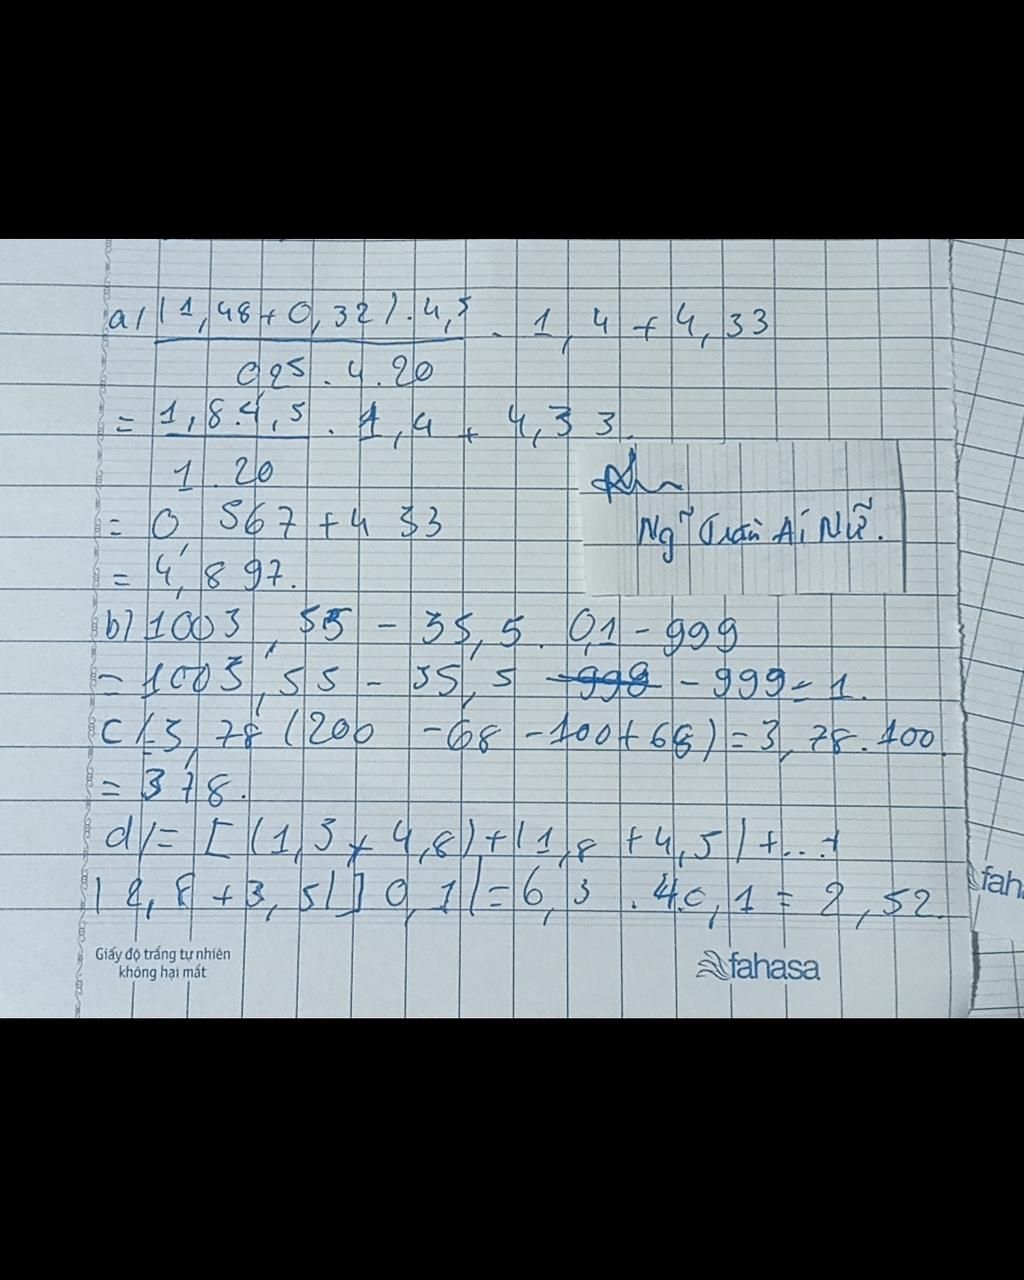 a/ (1,48+0,32).4,5 . 1,4 + 4,33
0,25 . 4 . 20
= 1,8.4,5 . 1,4 + 4,33.
1 . 20
= 0,567 + 4,33
= 4,897.
Ngỹ Trần Ái Nữ.
b) 1003,55 - 35,5 . 0,1 - 999
= 1003,55 - 35,5 - 999 = 1.
c/ = 3,78 (200 - 68 - 100 + 68) = 3,78.100
= 378.
d/ = [(1,5 + 4,8) + (1,8 + 4,5) + ... +
(2,8 + 3,5)] 0,1 = 6,3 . 4.0,1 = 2,52.
Giấy độ trắng tự nhiên
không hại mắt
fahasa
fah